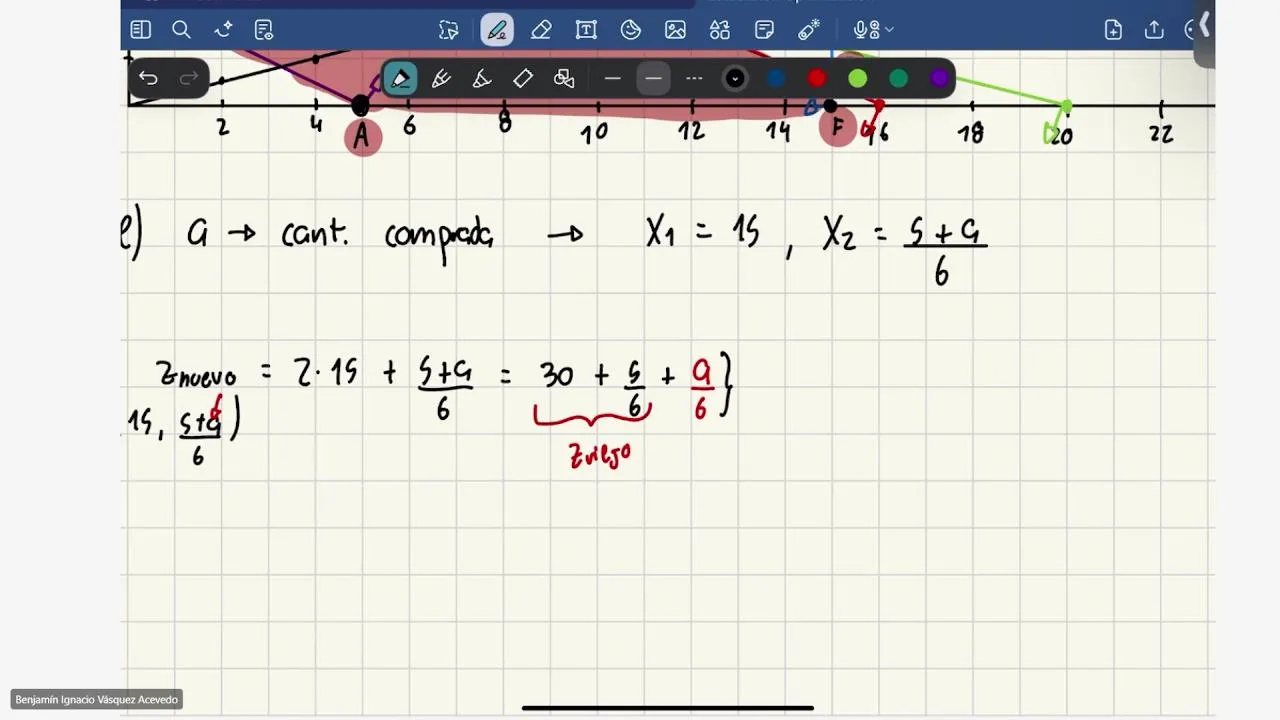 2 4 6 8 10 12 14 16 18 20 22
A F
e) a → cant. comprada → X1 = 15 , X2 = 5 + a / 6
Znuevo = 2 · 15 + 5+a / 6 = 30 + 5/6 + a/6 }
15, 5+a / 6 )
Zviejo
Benjamín Ignacio Vásquez Acevedo